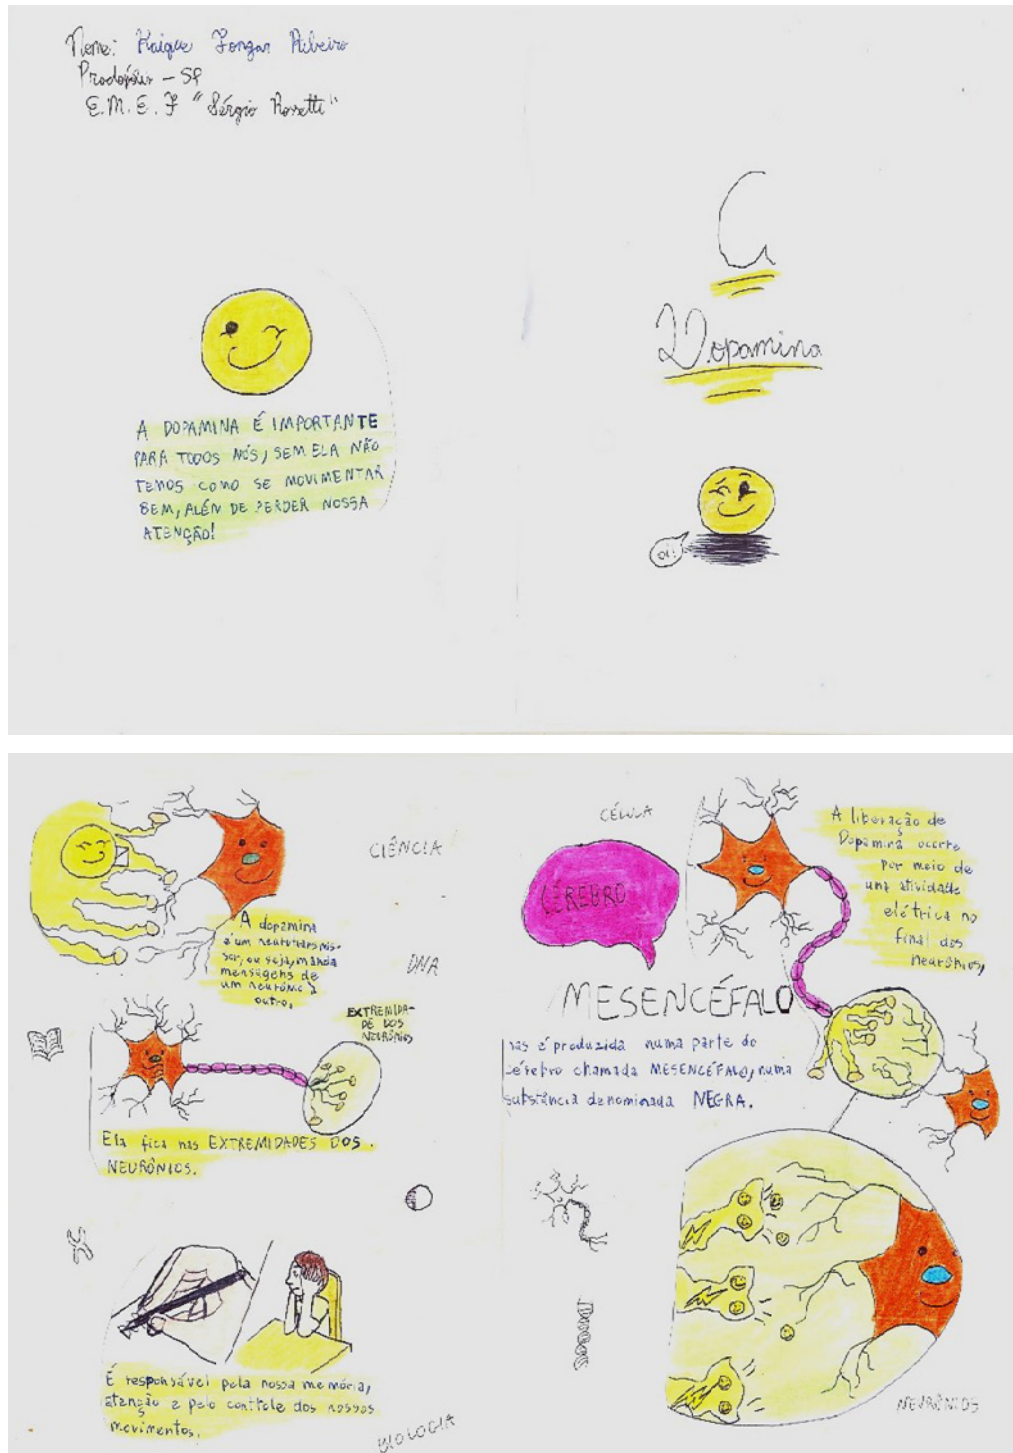 Nome: Kaique Fongar Ribeiro
Pradópolis - SP
E.M.E.F "Sérgio Rossetti"
A DOPAMINA É IMPORTANTE
PARA TODOS NÓS, SEM ELA NÃO
TEMOS COMO SE MOVIMENTAR
BEM, ALÉN DE PERDER NOSSA
ATENÇÃO!
A
Dopamina
Oi!
CIÊNCIA
A dopamina
é um neurotransmis-
sor, ou seja, manda
mensagens de
um neurônio à
outro.
DNA
EXTREMIDA-
DE DOS
NEURÔNIOS
Ela fica nas EXTREMIDADES DOS
NEURÔNIOS.
É responsável pela nossa memória,
atenção e pelo controle dos nossos
movimentos.
BIOLOGIA
CÉLULA
CÉREBRO
A liberação de
Dopamina ocorre
por meio de
una atividade
elétrica no
final dos
neurônios,
MESENCÉFALO
mas é produzida numa parte do
cérebro chamada MESENCÉFALO, numa
substância denominada NEGRA.
NEURÔNIOS